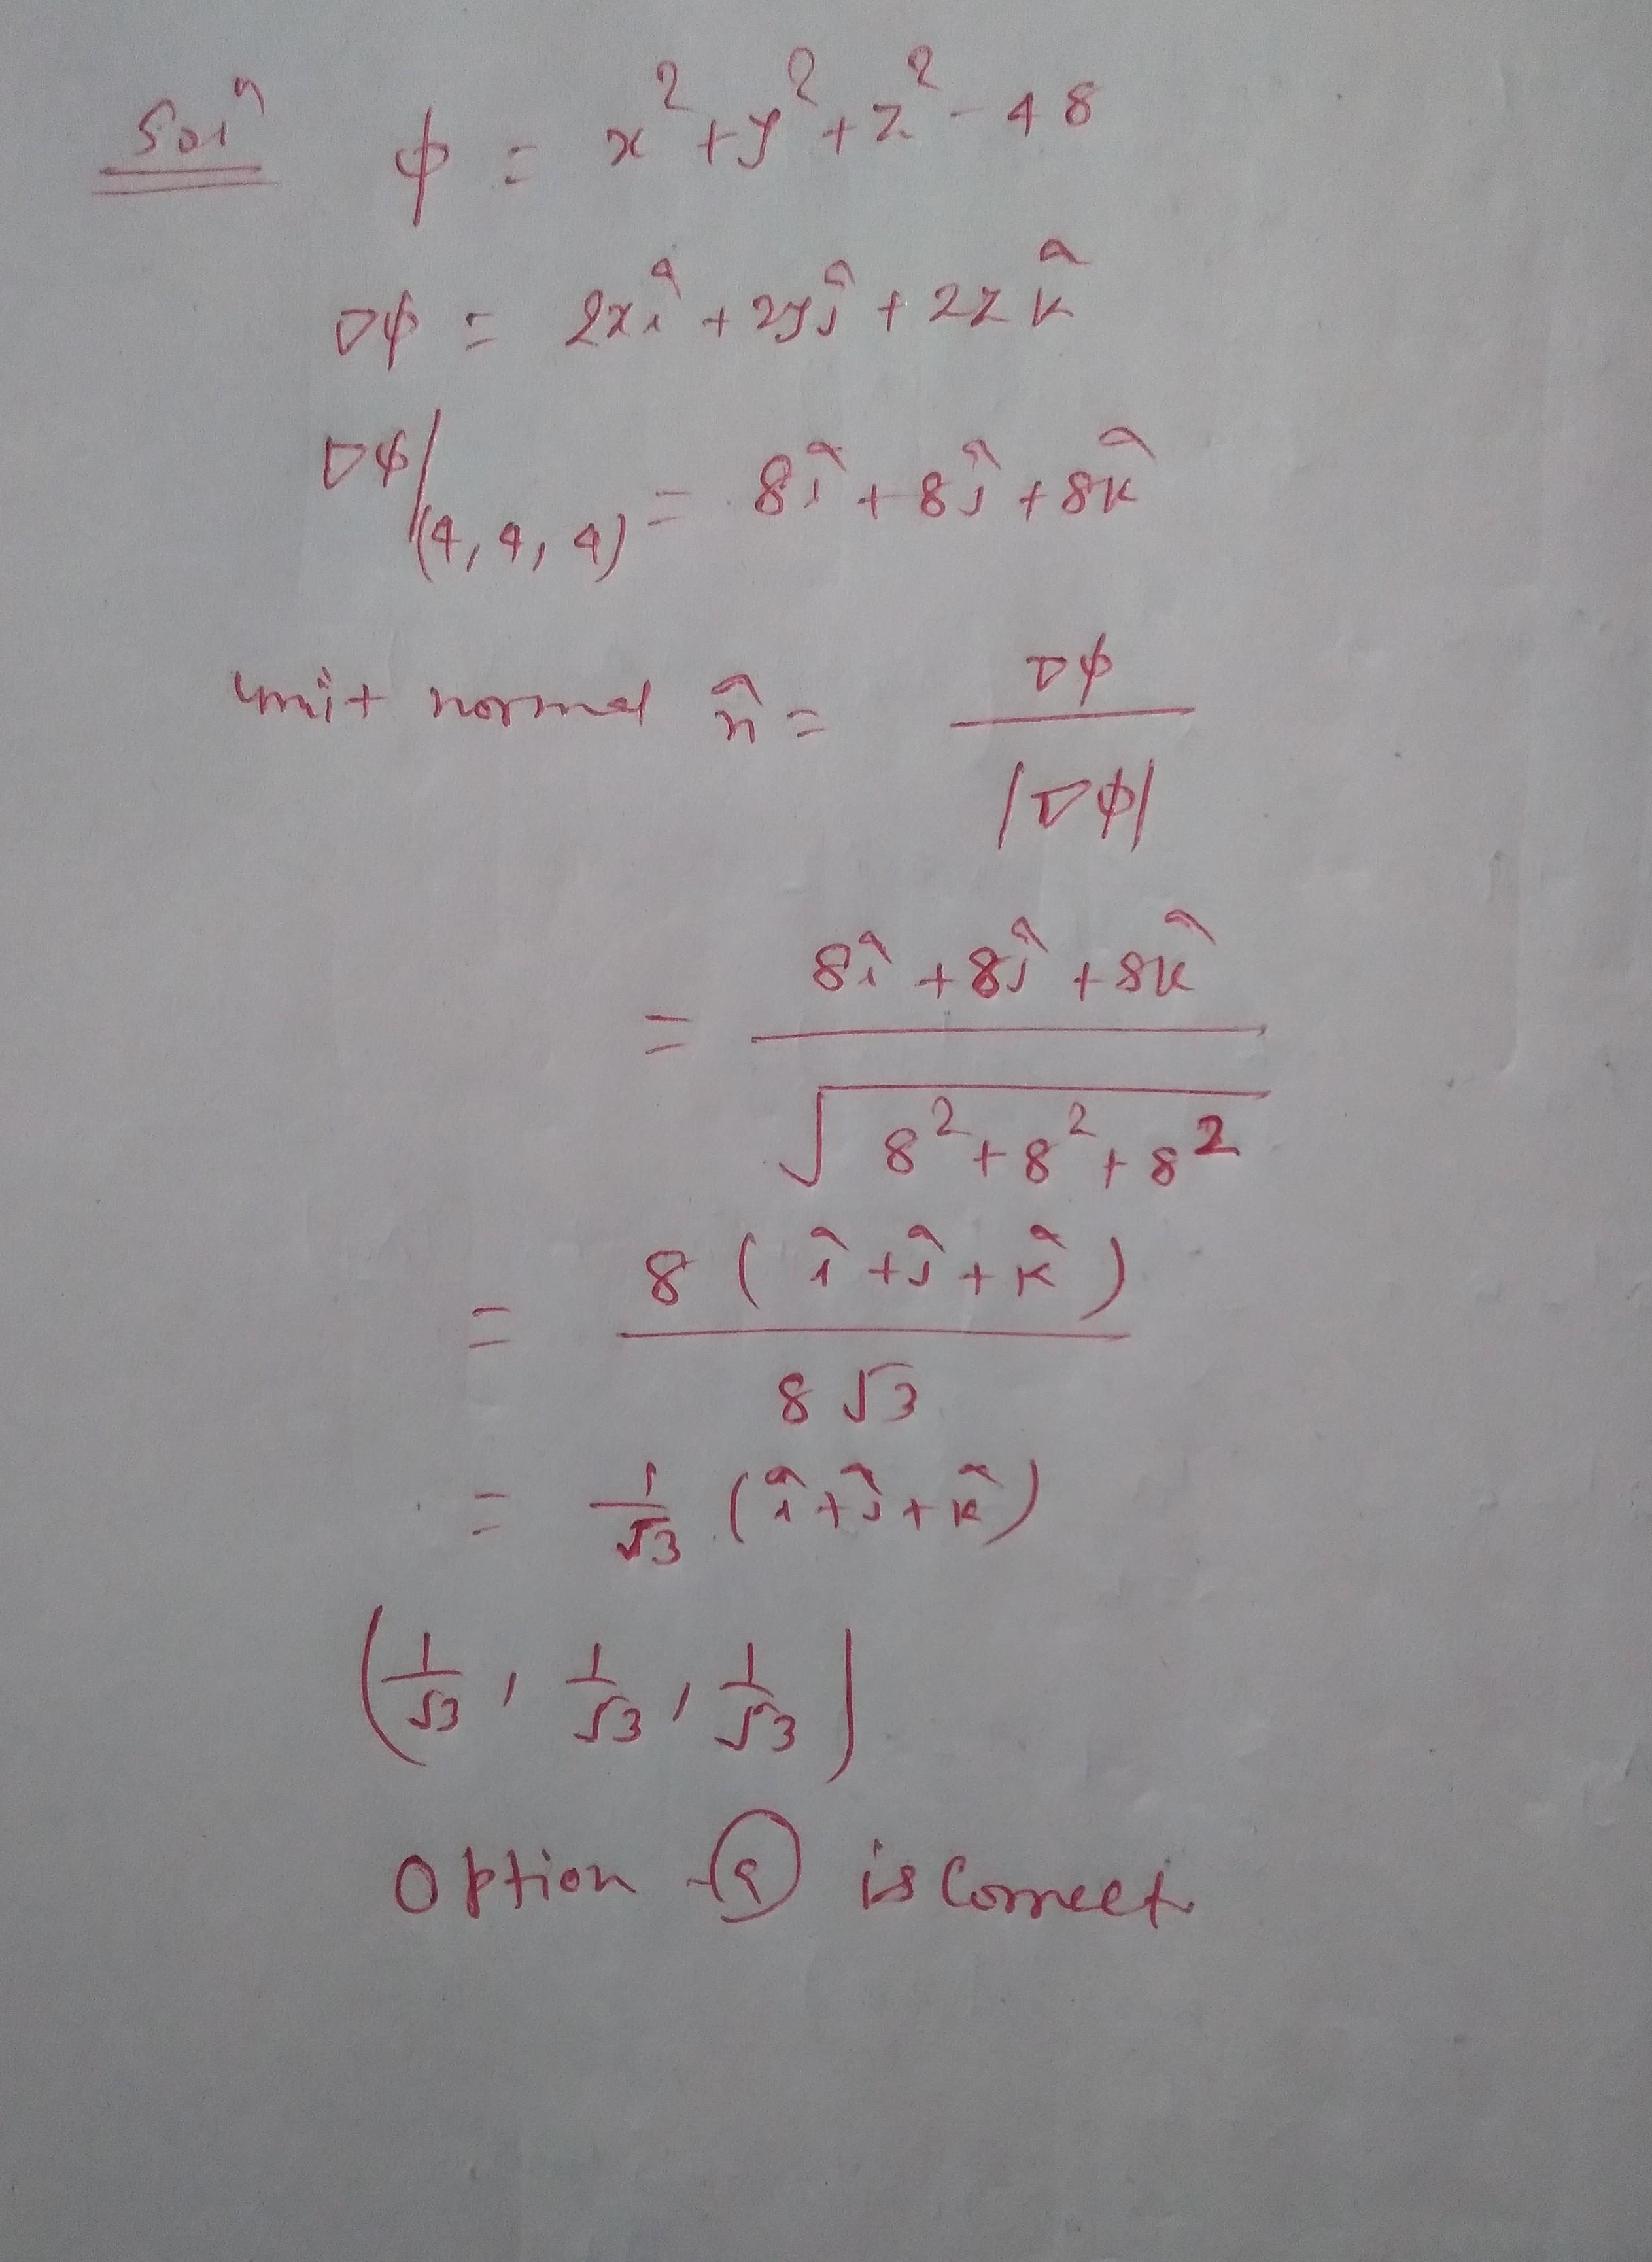 Solⁿ ϕ = x² + y² + z² - 48
∇ϕ = 2xî + 2yĵ + 2z k̂
∇ϕ|(4, 4, 4) = 8î + 8ĵ + 8k̂
unit normal n̂ = ∇ϕ / |∇ϕ|
= 8î + 8ĵ + 8k̂ / √8² + 8² + 8²
= 8 ( î + ĵ + k̂ ) / 8√3
= 1/√3 ( î + ĵ + k̂ )
( 1/√3 , 1/√3 , 1/√3 )
Option - is correct